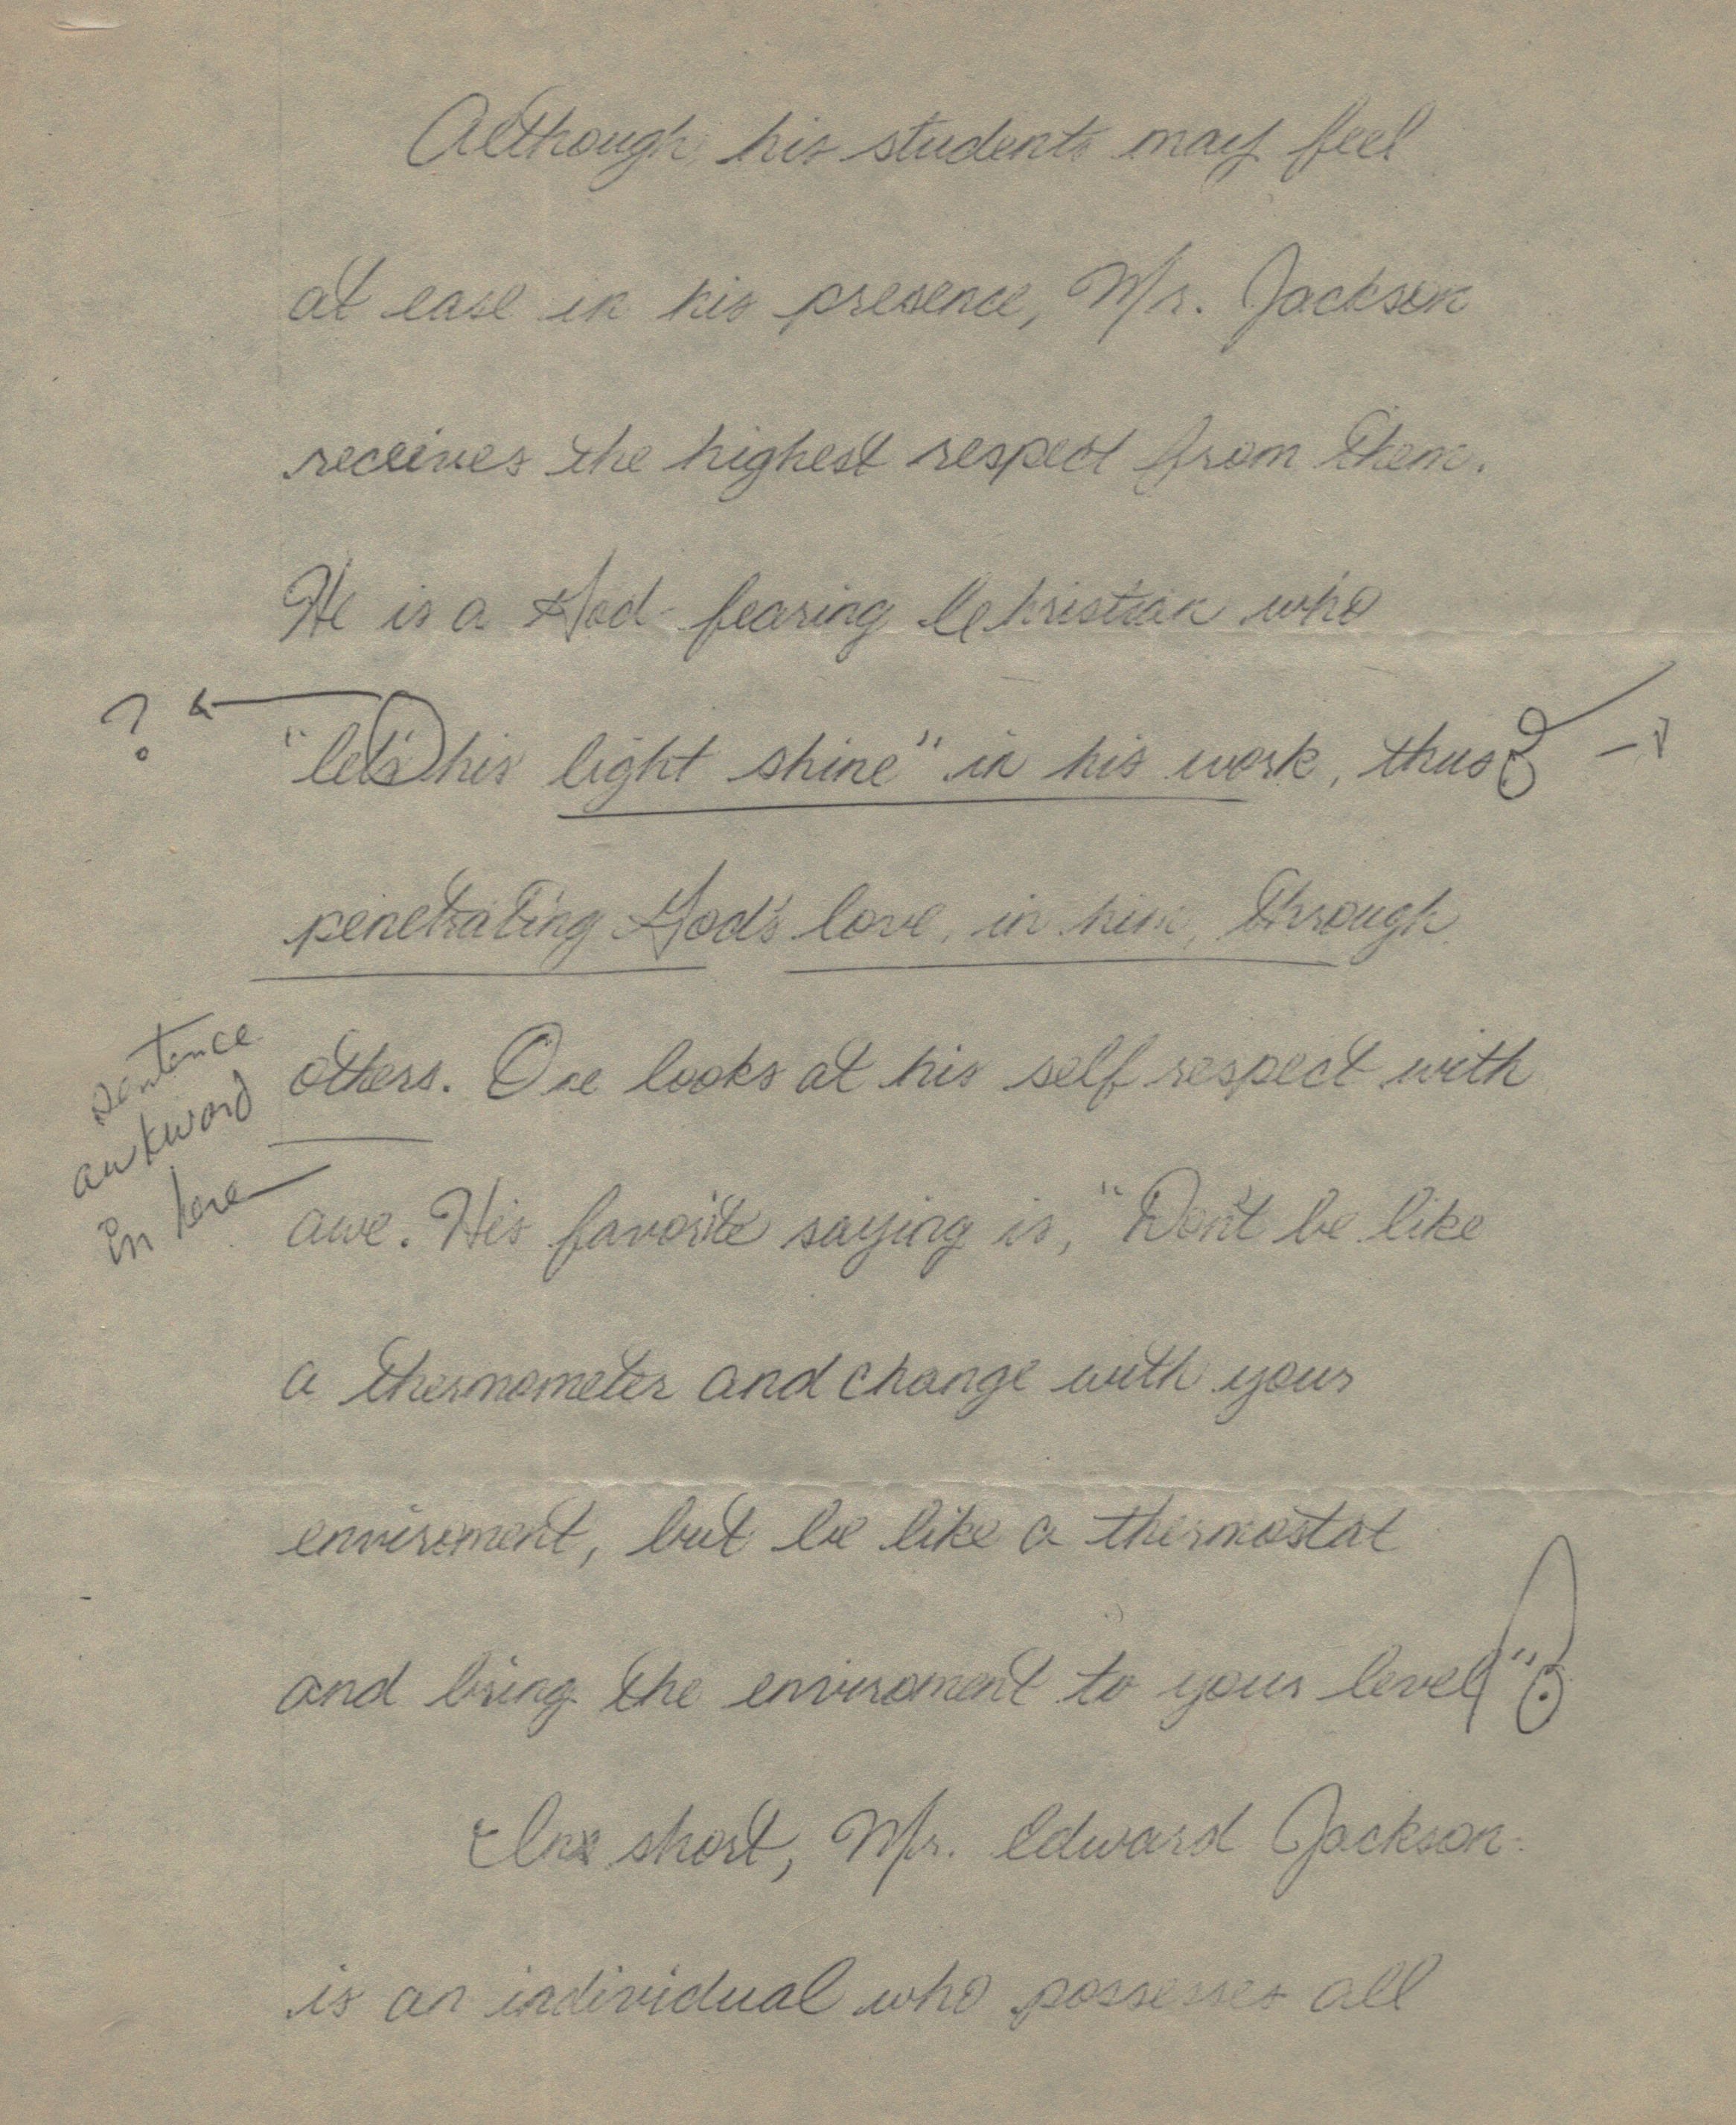 Although his students may feel
at ease in his presence, Mr. Jackson
receives the highest respect from them.
He is a God-fearing Christian who
?
"let's his light shine" in his work, thus
penetrating God's love, in him, through
others. One looks at his self respect with
sentence
awkword
in here
awe. His favorite saying is, "Don't be like
a thermometer and change with your
enviroment, but be like a thermostat
and bring the enviroment to your level".
In short, Mr. Edward Jackson
is an individual who possesses all